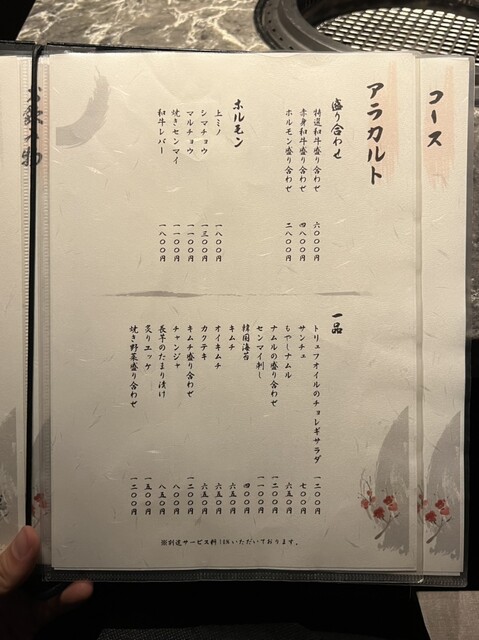 コース
アラカルト
盛り合わせ
特選和牛盛り合わせ 六〇〇〇円
赤身和牛盛り合わせ 四八〇〇円
ホルモン盛り合わせ 二八〇〇円
ホルモン
上ミノ 一八〇〇円
シマチョウ 一三〇〇円
マルチョウ 一一〇〇円
焼きセンマイ 一一〇〇円
和牛レバー 一八〇〇円
一品
トリュフオイルのチョレギサラダ 一二〇〇円
サンチュ 七〇〇円
もやしナムル 六五〇円
ナムルの盛り合わせ 一二〇〇円
センマイ刺し 一一〇〇円
韓国海苔 四〇〇円
キムチ 六五〇円
オイキムチ 六五〇円
カクテキ 六五〇円
キムチ盛り合わせ 一二〇〇円
チャンジャ 八〇〇円
長芋のたまり漬け 八五〇円
炙りエッケ 一五〇〇円
焼き野菜盛り合わせ 一二〇〇円
※別途サービス料10%いただいております。
お飲み物